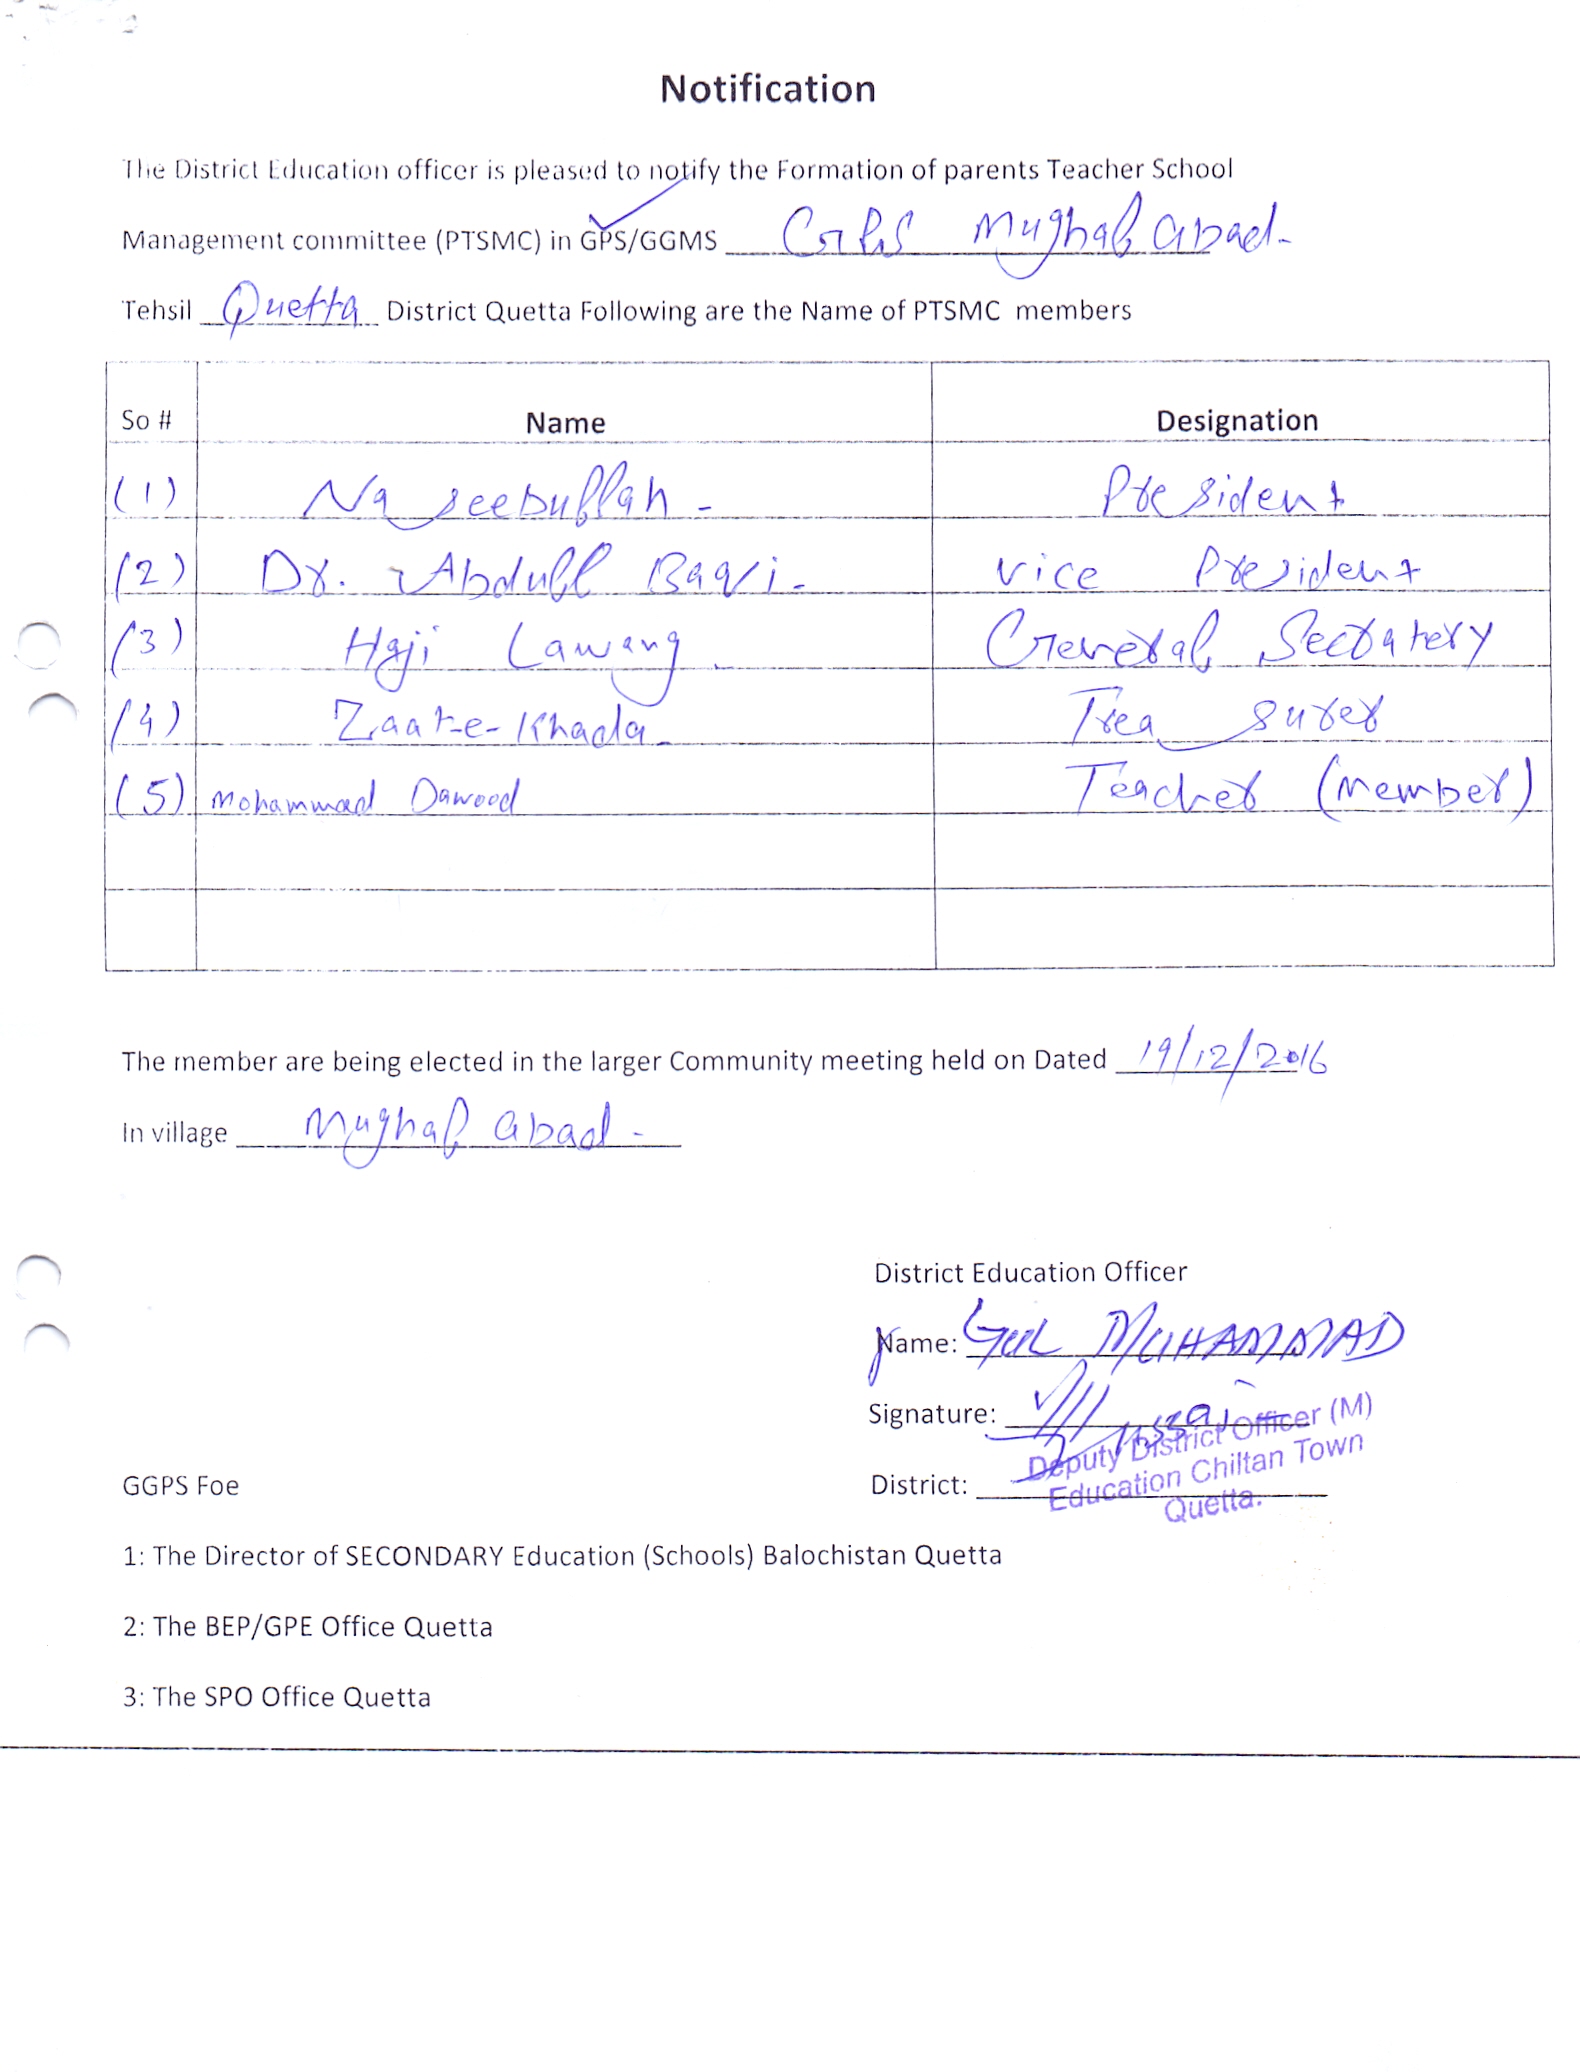 Notification
The District Education officer is pleased to notify the Formation of parents Teacher School
Management committee (PTSMC) in GPS/GGMS GPS Mughal abad-
Tehsil Quetta District Quetta Following are the Name of PTSMC members
So # Name Designation
(1) Naseebullah - President
(2) Dr. Abdull Baqi- vice President
(3) Haji Lawang - General Secratery
(4) Zaat-e-Khada- Treasurer
(5) Mohammad Dawood Teacher (member)
The member are being elected in the larger Community meeting held on Dated 19/12/2016
In village Mughal abad -
District Education Officer
Name: GUL MOHAMMAD
Signature:
Deputy District Officer (M)
Education Chiltan Town
Quetta.
District:
GGPS Foe
1: The Director of SECONDARY Education (Schools) Balochistan Quetta
2: The BEP/GPE Office Quetta
3: The SPO Office Quetta